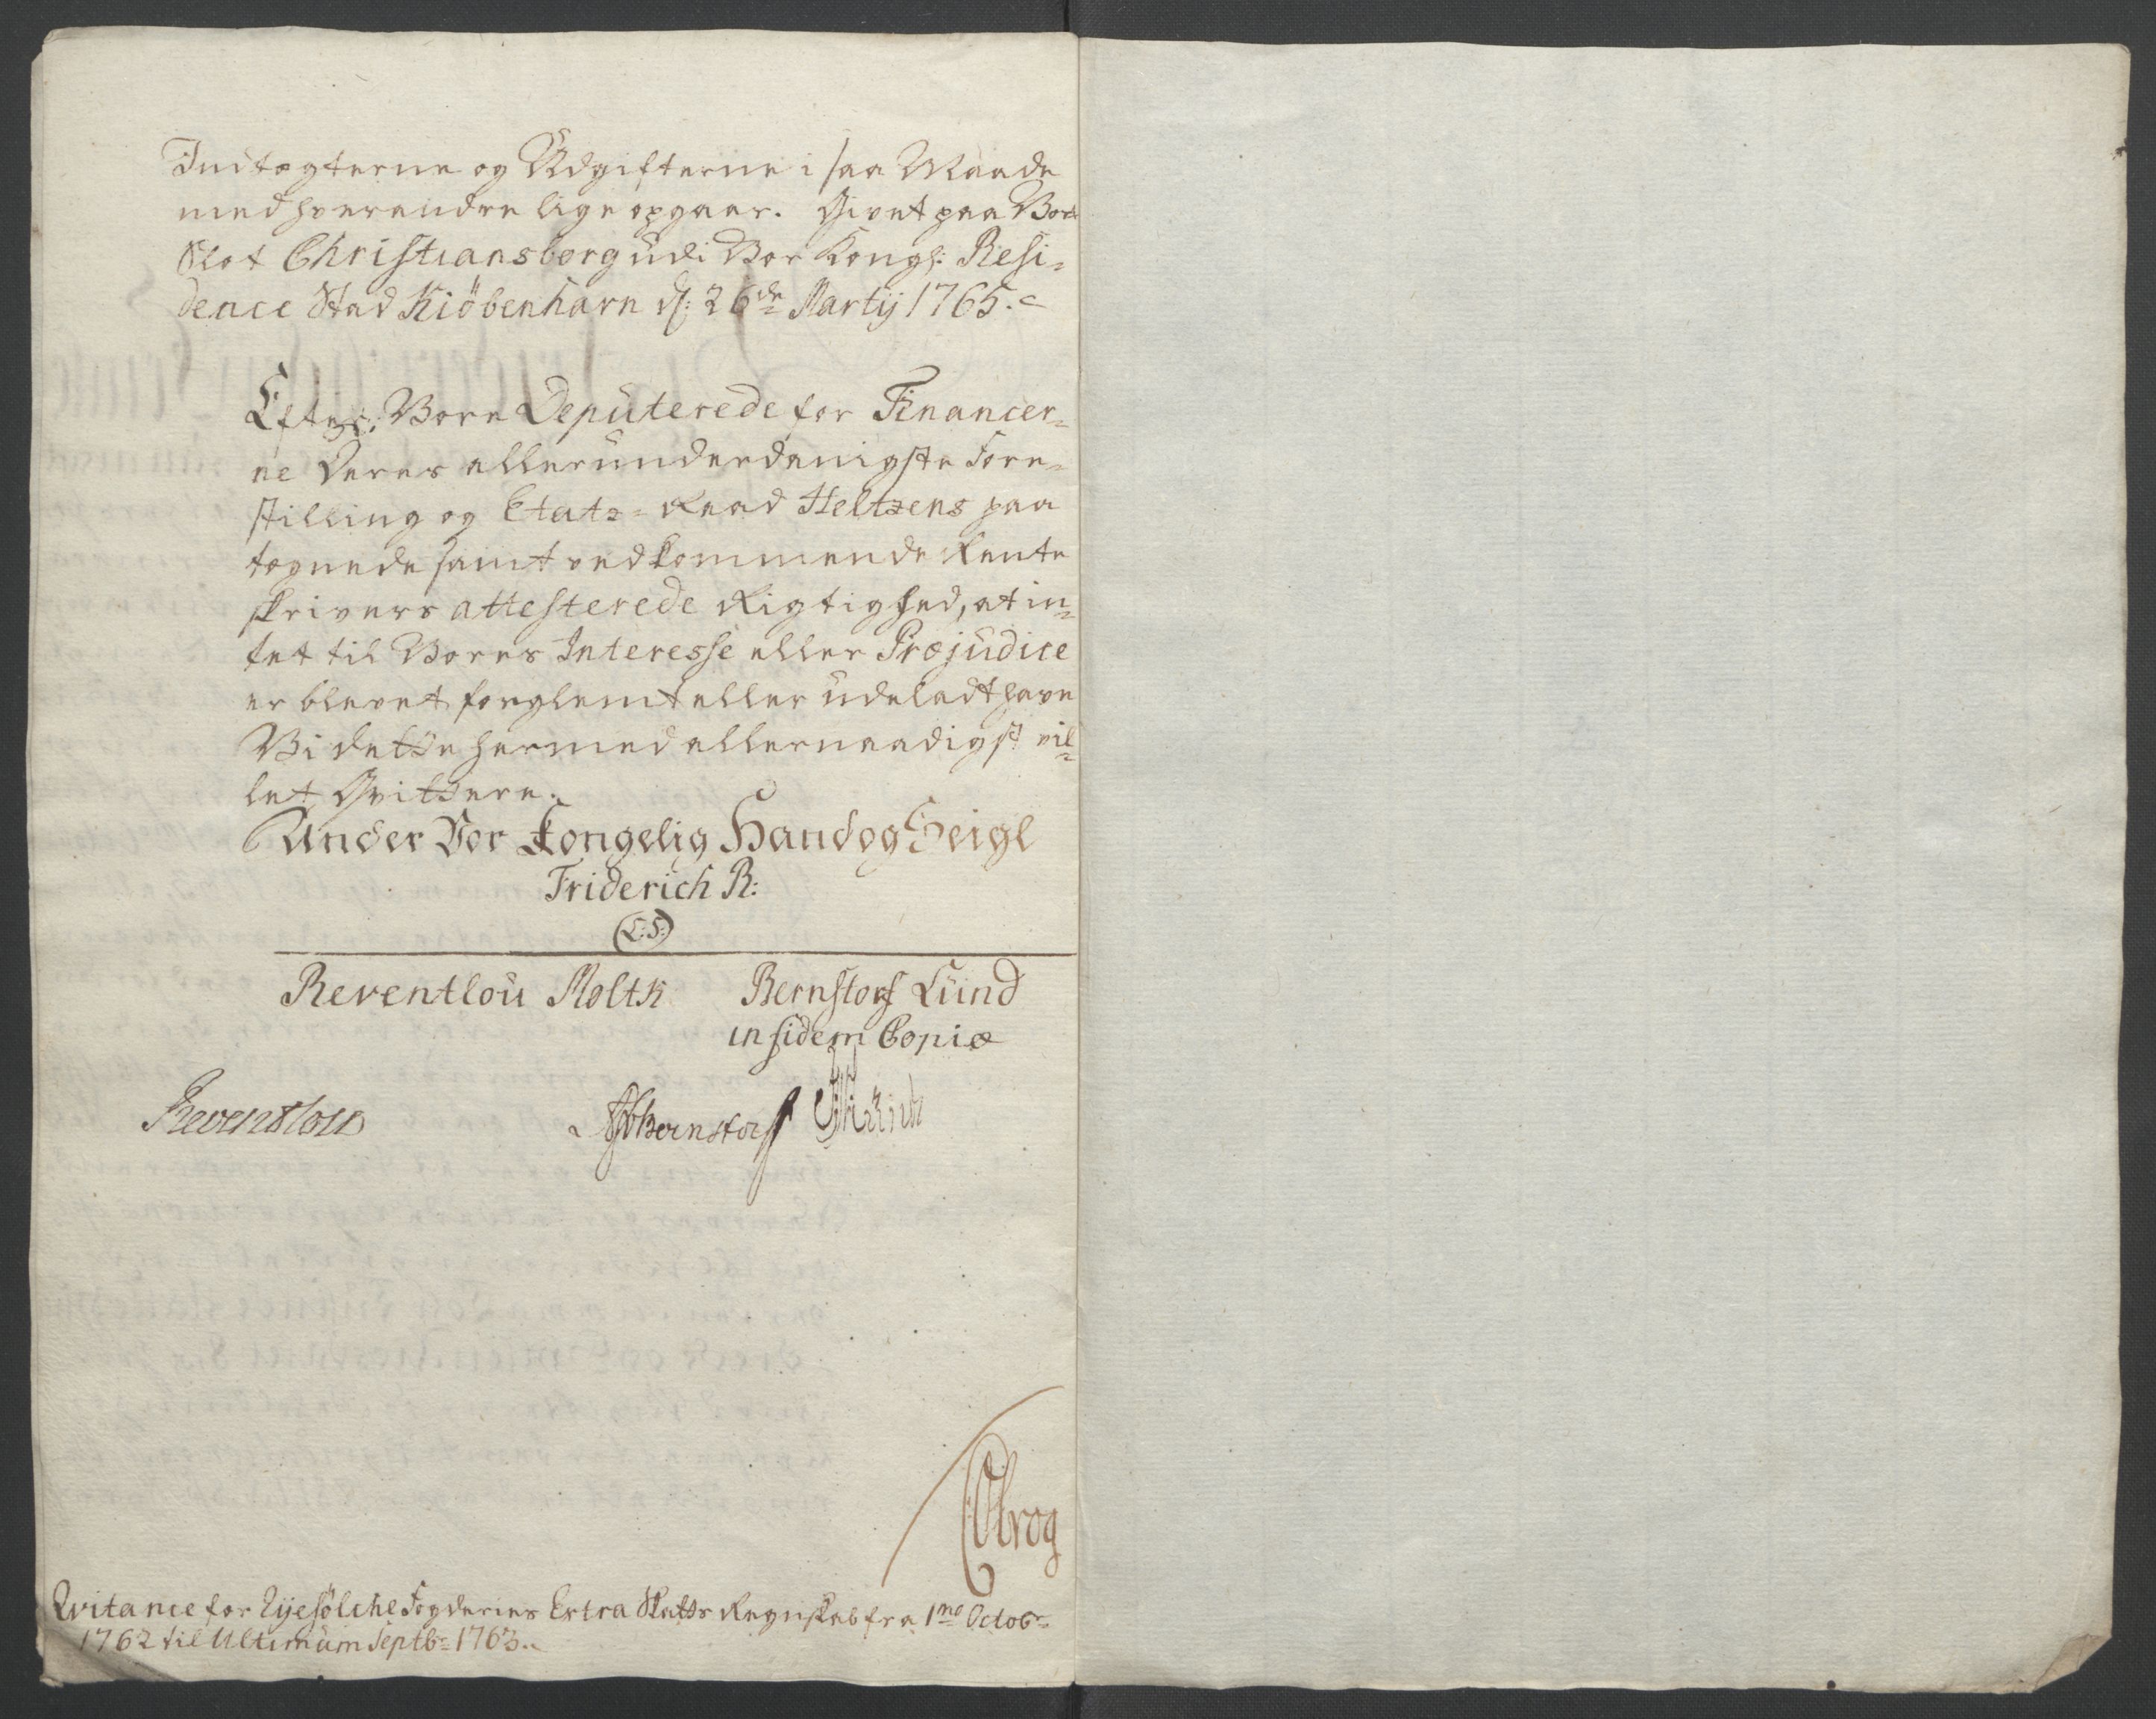 Indtægterne og Udgifterne i saa Maade
med hverandre lige opgaar. Givet paa Vort
Slot Christiansborg udi Vor Kongl: Resi=
dence Stad Kiöbenhavn d: 26de Martij 1765.
Efter Vore Deputerede for Financer=
ne Deres allerunderdanigste Fore=
stilling og Etatz=Raad Heltzens paa
tegnede samt vedkommende Rente
skrivers attesterede Rigtighed, at in=
tet til Vores Interesse eller Præjudice
er blevet forglemt eller udeladt have
Vi dette hermed allernaadigst vil=
let Qvittere.
Under Vor Kongelig Hand og Seigl
Friderich R:
(L:S:)
Reventlou Moltk Bernstorf Lund
in fidem Copiæ
Reventlou Bernstorff
Qvitance for Ryefölche Fogderies Extra Skatts Regnskab fra 1me Octobr=
1762 til Ultimum Septbr= 1763.